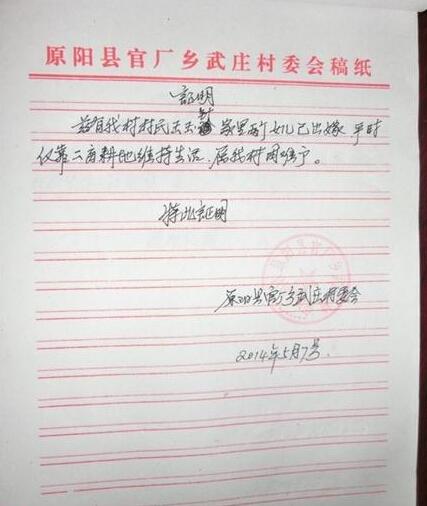 原阳县官厂乡武庄村委会稿纸
证明
兹有我村村民王玉 家里两个女儿已出嫁 平时
仅靠二亩耕地维持生活、属我村困难户。
特此证明
原阳县官厂乡武庄村委会
2014年5月7号.